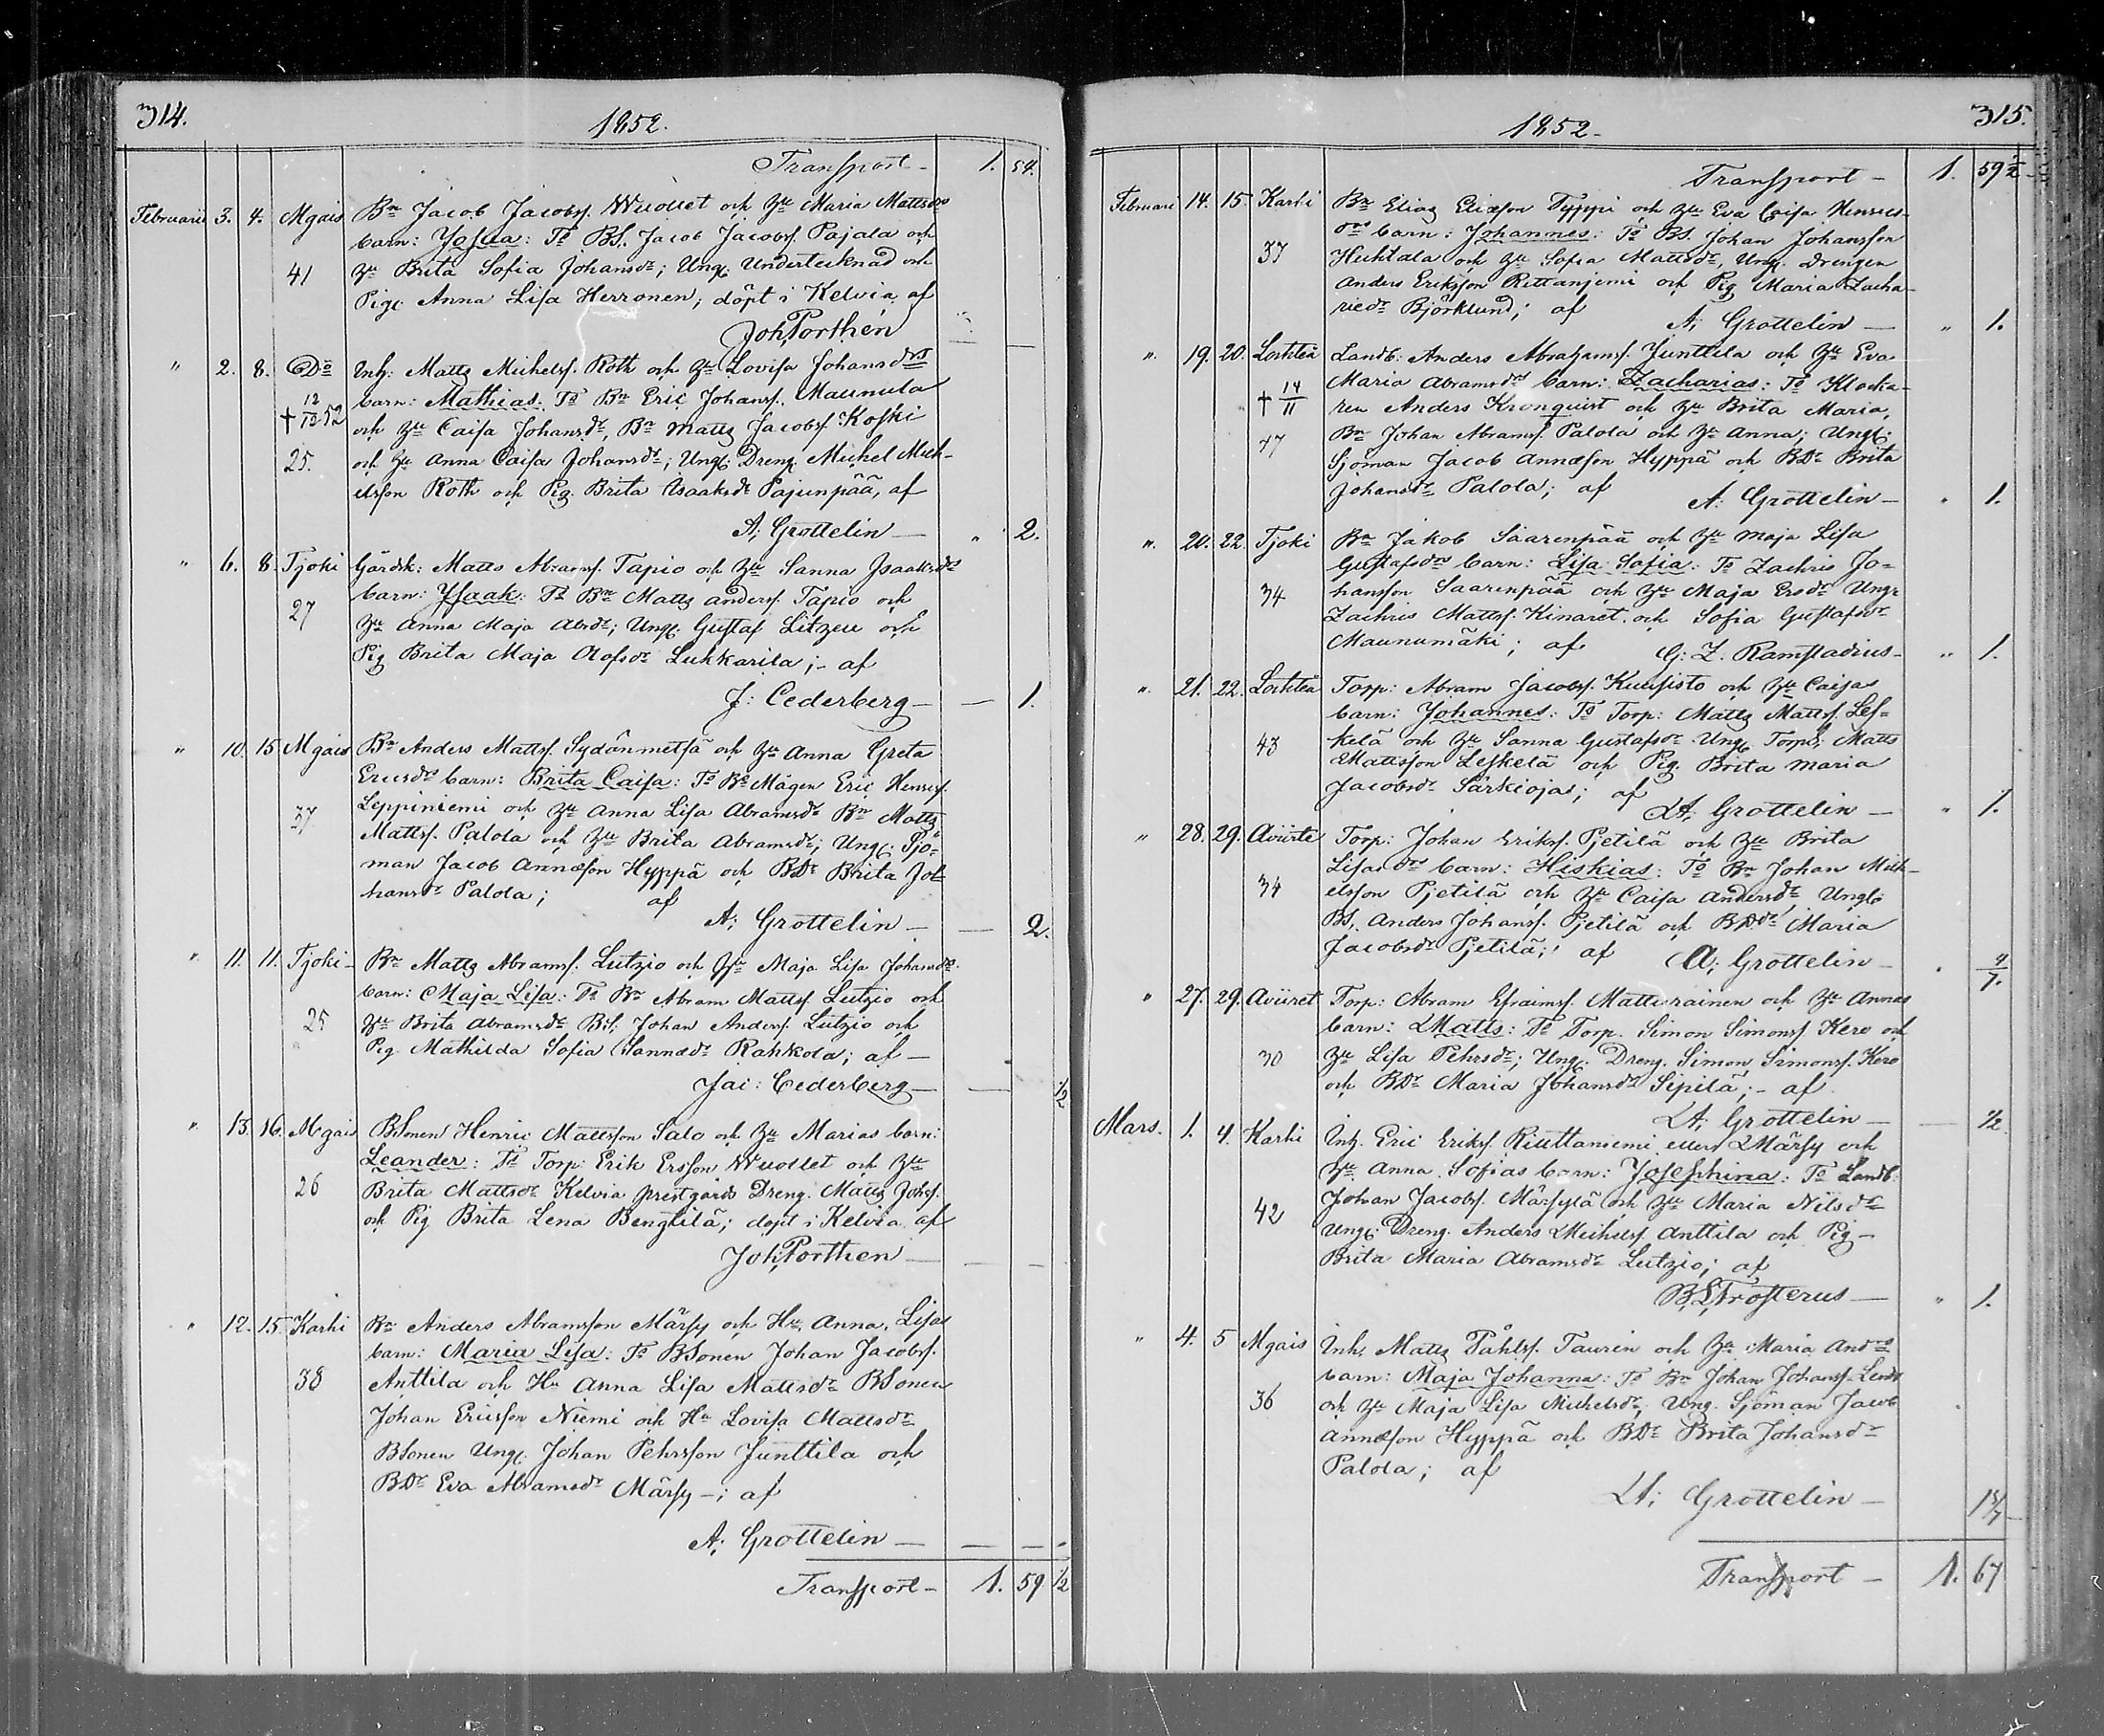 314.
1852.
Transport - 1. 54.
Februarii 3. 4. Mgais Bn Jacob Jacobsf. Wuollet och Hu Maria Mattsdrs
barn: Josua: Ts BS. Jacob Jacobsf. Pajala och
41 Hu Brita Sofia Johansdr; Ung: Undertecknad och
Pig: Anna Lisa Herronen; döpt i Kelvia, af
Joh Porthén
" 2. 8. Do Inh: Matts Michelsf. Roth och Hu Lovisa Johansdrs
† 12/12 52 barn: Mathias: Ts Bn Eric Johansf. Maunula
och Hu Caisa Johansdr, Bn Matts Jacobsf. Koski
25. och Hu Anna Caisa Johansdr; Ung: Dreng. Michel Mich-
elsson Roth och Pig: Brita Isaaksdr Pajunpää, af
A: Grottelin — " 2.
" 6. 8. Tjoki Gårdsk: Matts Abramsf. Tapio och Hu Sanna Isaaksdrs
barn: Isaak: Ts Bn Matts Andersf. Tapio och
27 Hu Anna Maja Abrdr; Ung: Gustaf Litzen och
Pig Brita Maja Olofsdr Lukkarila; - af
J: Cederberg — — 1.
" 10. 15 Mgais Bn Anders Mattsf. Sydänmetsä och Hu Anna Greta
Ericsdrs barn: Brita Caisa: Ts Bs Mågen Eric Henricsf.
37 Leppiniemi och Hu Anna Lisa Abramsdr Bn Matts
Mattsf. Palola och Hu Brita Abramsdr; Ung: Sjö-
man Jacob Annæson Hyppä och BDr Brita Jo-
hansdr Palola; af
A: Grottelin — — 2.
" 11. 11. Tjoki - Bn Matts Abramsf. Lutzio och Hu Maja Lisa Johansdrs
barn: Maja Lisa: Ts Bn Abram Mattsf. Lutzio och
25 Hu Brita Abramsdr BS. Johan Andersf. Lutzio och
Pig Mathilda Sofia Sannædr Rahkola; af —
Jac: Cederberg — — 1/2
" 13. 16. Mgais BSonen Henric Mattsson Salo och Hu Marias barn:
Leander: Ts Torp: Erik Ersson Wuollet och Hu
26 Brita Mattsdr Kelvia prestgårds Dreng. Matts Johsf.
och Pig Brita Lena Bengtilä; döpt i Kelvia af
Joh Porthen —
" 12. 15. Karhi Bn Anders Abramsson Märsy och Hu Anna Lisas
barn: Maria Lisa: Ts BSonen Johan Jacobsf.
38 Anttila och Hu Anna Lisa Mattsdr BSonen
Johan Ericsson Niemi och Hu Lovisa Mattsdr
BSonen Ung: Johan Pehrsson Junttila och
BDr Eva Abramsdr Märsy —; af
A: Grottelin — — — -
Transport — 1. 59 1/2
315.
1852 -
Transport — 1. 59 1/2 -
Februari 14. 15. Karhi Bn Elias Eliæson Typpi och Hu Eva Caisa Henrics-
drs barn: Johannes: Ts BS. Johan Johansson
37 Huhtala och Hu Sofia Mattsdr, Ung: Drengen
Anders Eriksson Rittaniemi och Pig Maria Zacha-
riedr Björklund; af
A: Grottelin — " 1.
" 19. 20. Lochteå Landb: Anders Abrahamsf. Junttila och Hu Eva
† 14/11 Maria Abramsdrs barn: Zacharias: Ts Klocka-
ren Anders Kronquist och Hu Brita Maria,
47 Bn Johan Abramsf. Palola och Hu Anna; Ung:
Sjöman Jacob Annæson Hyppä och BDr Brita
Johansdr Palola; af A: Grottelin — " 1.
" 20. 22. Tjoki Bn Jakob Saarenpää och Hu Maja Lisa
Gustafsdrs barn: Lisa Sofia: Ts Zachris Jo-
34 hansson Saarenpää och Hu Maja Ersdr Ung:
Zachris Mattsf. Kinaret och Sofia Gustafsdr
Maunumäki; af G: Z. Ramstadius — " 1.
" 21. 22. Lochteå Torp: Abram Jacobsf. Kuusisto och Hu Caisas
barn: Johannes: Ts Torp: Matts Mattsf. Les-
43 kelä och Hu Sanna Gustafsdr Ung. Torps: Matts
Mattsson Leskelä och Pig. Brita Maria
Jacobsdr Särkiojas; af
A: Grottelin — " 1.
" 28. 29. Aviirte Torp: Johan Eriksf. Pjetilä och Hu Brita
Lisas barn: Hiskias: Ts Bn Johan Mich-
34 elsson Pjetilä och Hu Caisa Andersdr, Ung:
BS. Anders Johansf. Pjetilä och BDr Maria
Jacobsdr Pjetilä; af A: Grottelin —
" 27. 29. Aviiret Torp: Abram Efraimsf. Matturainen och Hu Annas
barn: Matts: Ts Torp. Simon Simonsf. Kero och
30 Hu Lisa Pehrsdr; Ung: Dreng. Simon Simonsf. Kero
och BDr Maria Johansdr Sipilä; - af
A: Grottelin — — 1/2
Mars. 1. 4. Karhi Inh. Eric Eriksf. Riuttaniemi eller Märsy och
Hu Anna Sofias barn: Josephina: Ts Landb:
42 Johan Jacobsf. Märsylä och Hu Maria Nilsdr
Ung: Dreng. Anders Michelsf. Anttila och Pig —
Brita Maria Abramsdr Lutzio; af
B. S. Frosterus — " 1.
" 4. 5 Mgais Inh. Matts Påhlsf. Taurin och Hu Maria Andrs
barn: Maja Johanna: Ts Bn Johan Johansf.
36 och Hu Maja Lisa Michelsdr; Ung. Sjöman Jacob
Annæson Hyppä och BDr Brita Johansdr
Palola; af
A: Grottelin —
Transport — 1. 67